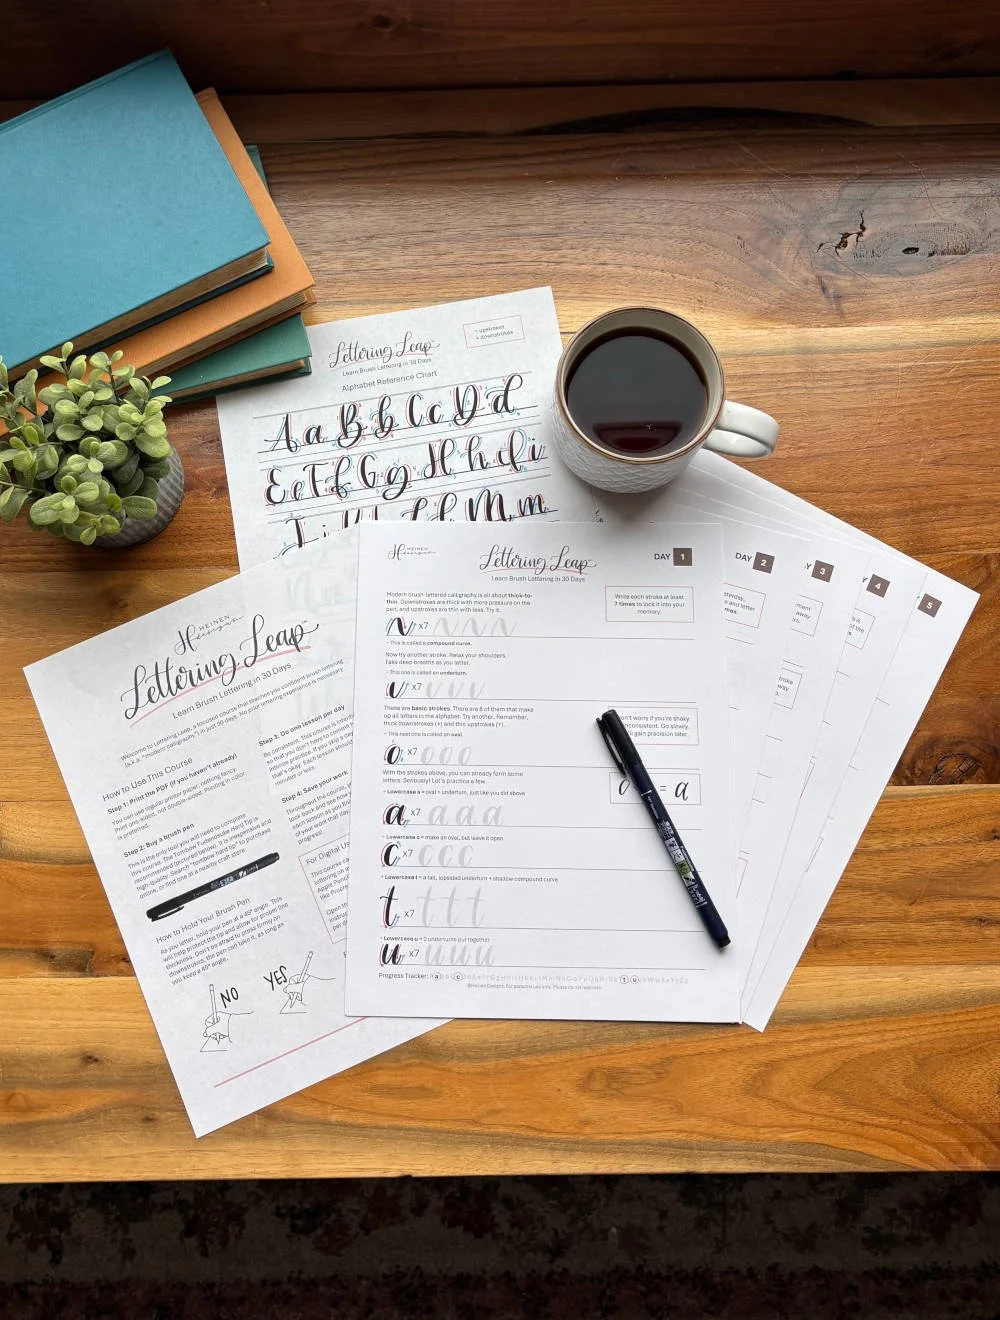 Lettering Leap
Learn Brush Lettering in 30 Days
Alphabet Reference Chart
+ upstrokes
+ downstrokes
A a B b C c D d
E e F f G g H h I i
M m
HEINEN
Designs
Lettering Leap™
Learn Brush Lettering in 30 Days
Welcome to Lettering Leap, a focused course that teaches you confident brush lettering
(a.k.a. "modern calligraphy") in just 30 days. No prior lettering experience is necessary.
How to Use This Course
Step 1: Print the PDF (if you haven't already)
You can use regular printer paper, nothing fancy.
Print one-sided, not double-sided. Printing in color
is preferred.
Step 2: Buy a brush pen
This is the only tool you will need to complete
this course. The Tombow Fudenosuke Hard Tip is
recommended (pictured below). It is inexpensive and
high-quality. Search "tombow hard tip" to purchase
online, or find one at a nearby craft store.
How to Hold Your Brush Pen
As you letter, hold your pen at a 45° angle. This
will help protect the tip and allow for proper line
thickness. Don't be afraid to press firmly on
downstrokes; the pen can take it, as long as
you keep a 45° angle.
NO
YES
Step 3: Do one lesson per day
Be consistent. This course is
so that you don't have to commit
intense practice. If you skip a day
that's okay. Each lesson should
minutes or less.
Step 4: Save your work
Throughout the course,
look back and see how
each lesson as you
of your work that day
progress!
For Digital
This course
lettering on
Apple Penc
like Procre
Open the
instruc
HEINEN
Designs
Lettering Leap™
Learn Brush Lettering in 30 Days
DAY 1
Modern brush-lettered calligraphy is all about thick-to-
thin. Downstrokes are thick with more pressure on the
pen, and upstrokes are thin with less. Try it.
Write each stroke at least
7 times to lock it into your
memory.
x7
- This is called a compound curve.
Now try another stroke. Relax your shoulders.
Take deep breaths as you letter.
- This one is called an underturn.
x7
These are basic strokes. There are 8 of them that make
up all letters in the alphabet. Try another. Remember,
thick downstrokes (+) and thin upstrokes (+).
- This next one is called an oval.
on't worry if you're shaky
inconsistent. Go slowly.
ll gain precision later.
o x7 o o o
With the strokes above, you can already form some
letters. Seriously! Let's practice a few.
- Lowercase a = oval + underturn, just like you did above
= a
a x7 a a a
- Lowercase c = make an oval, but leave it open
c x7 c c c
- Lowercase t = a tall, lopsided underturn + shallow compound curve
t x7 t t t
- Lowercase u = 2 underturns put together
u x7 u u u
Progress Tracker:
©Heinen Designs. For personal use only. Please do not replicate.
DAY 2
3
4
5